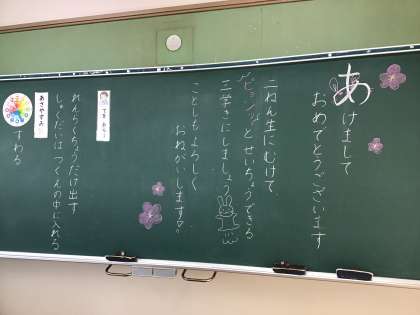 あけまして
おめでとうございます
二ねん生にむけて
ピョンッとせいちょうできる
三学きにしましょう
ことしもよろしく
おねがいします。
れんらくちょうだけ出す
しゅくだいは つくえの中に入れる
あさやすみ
すわる